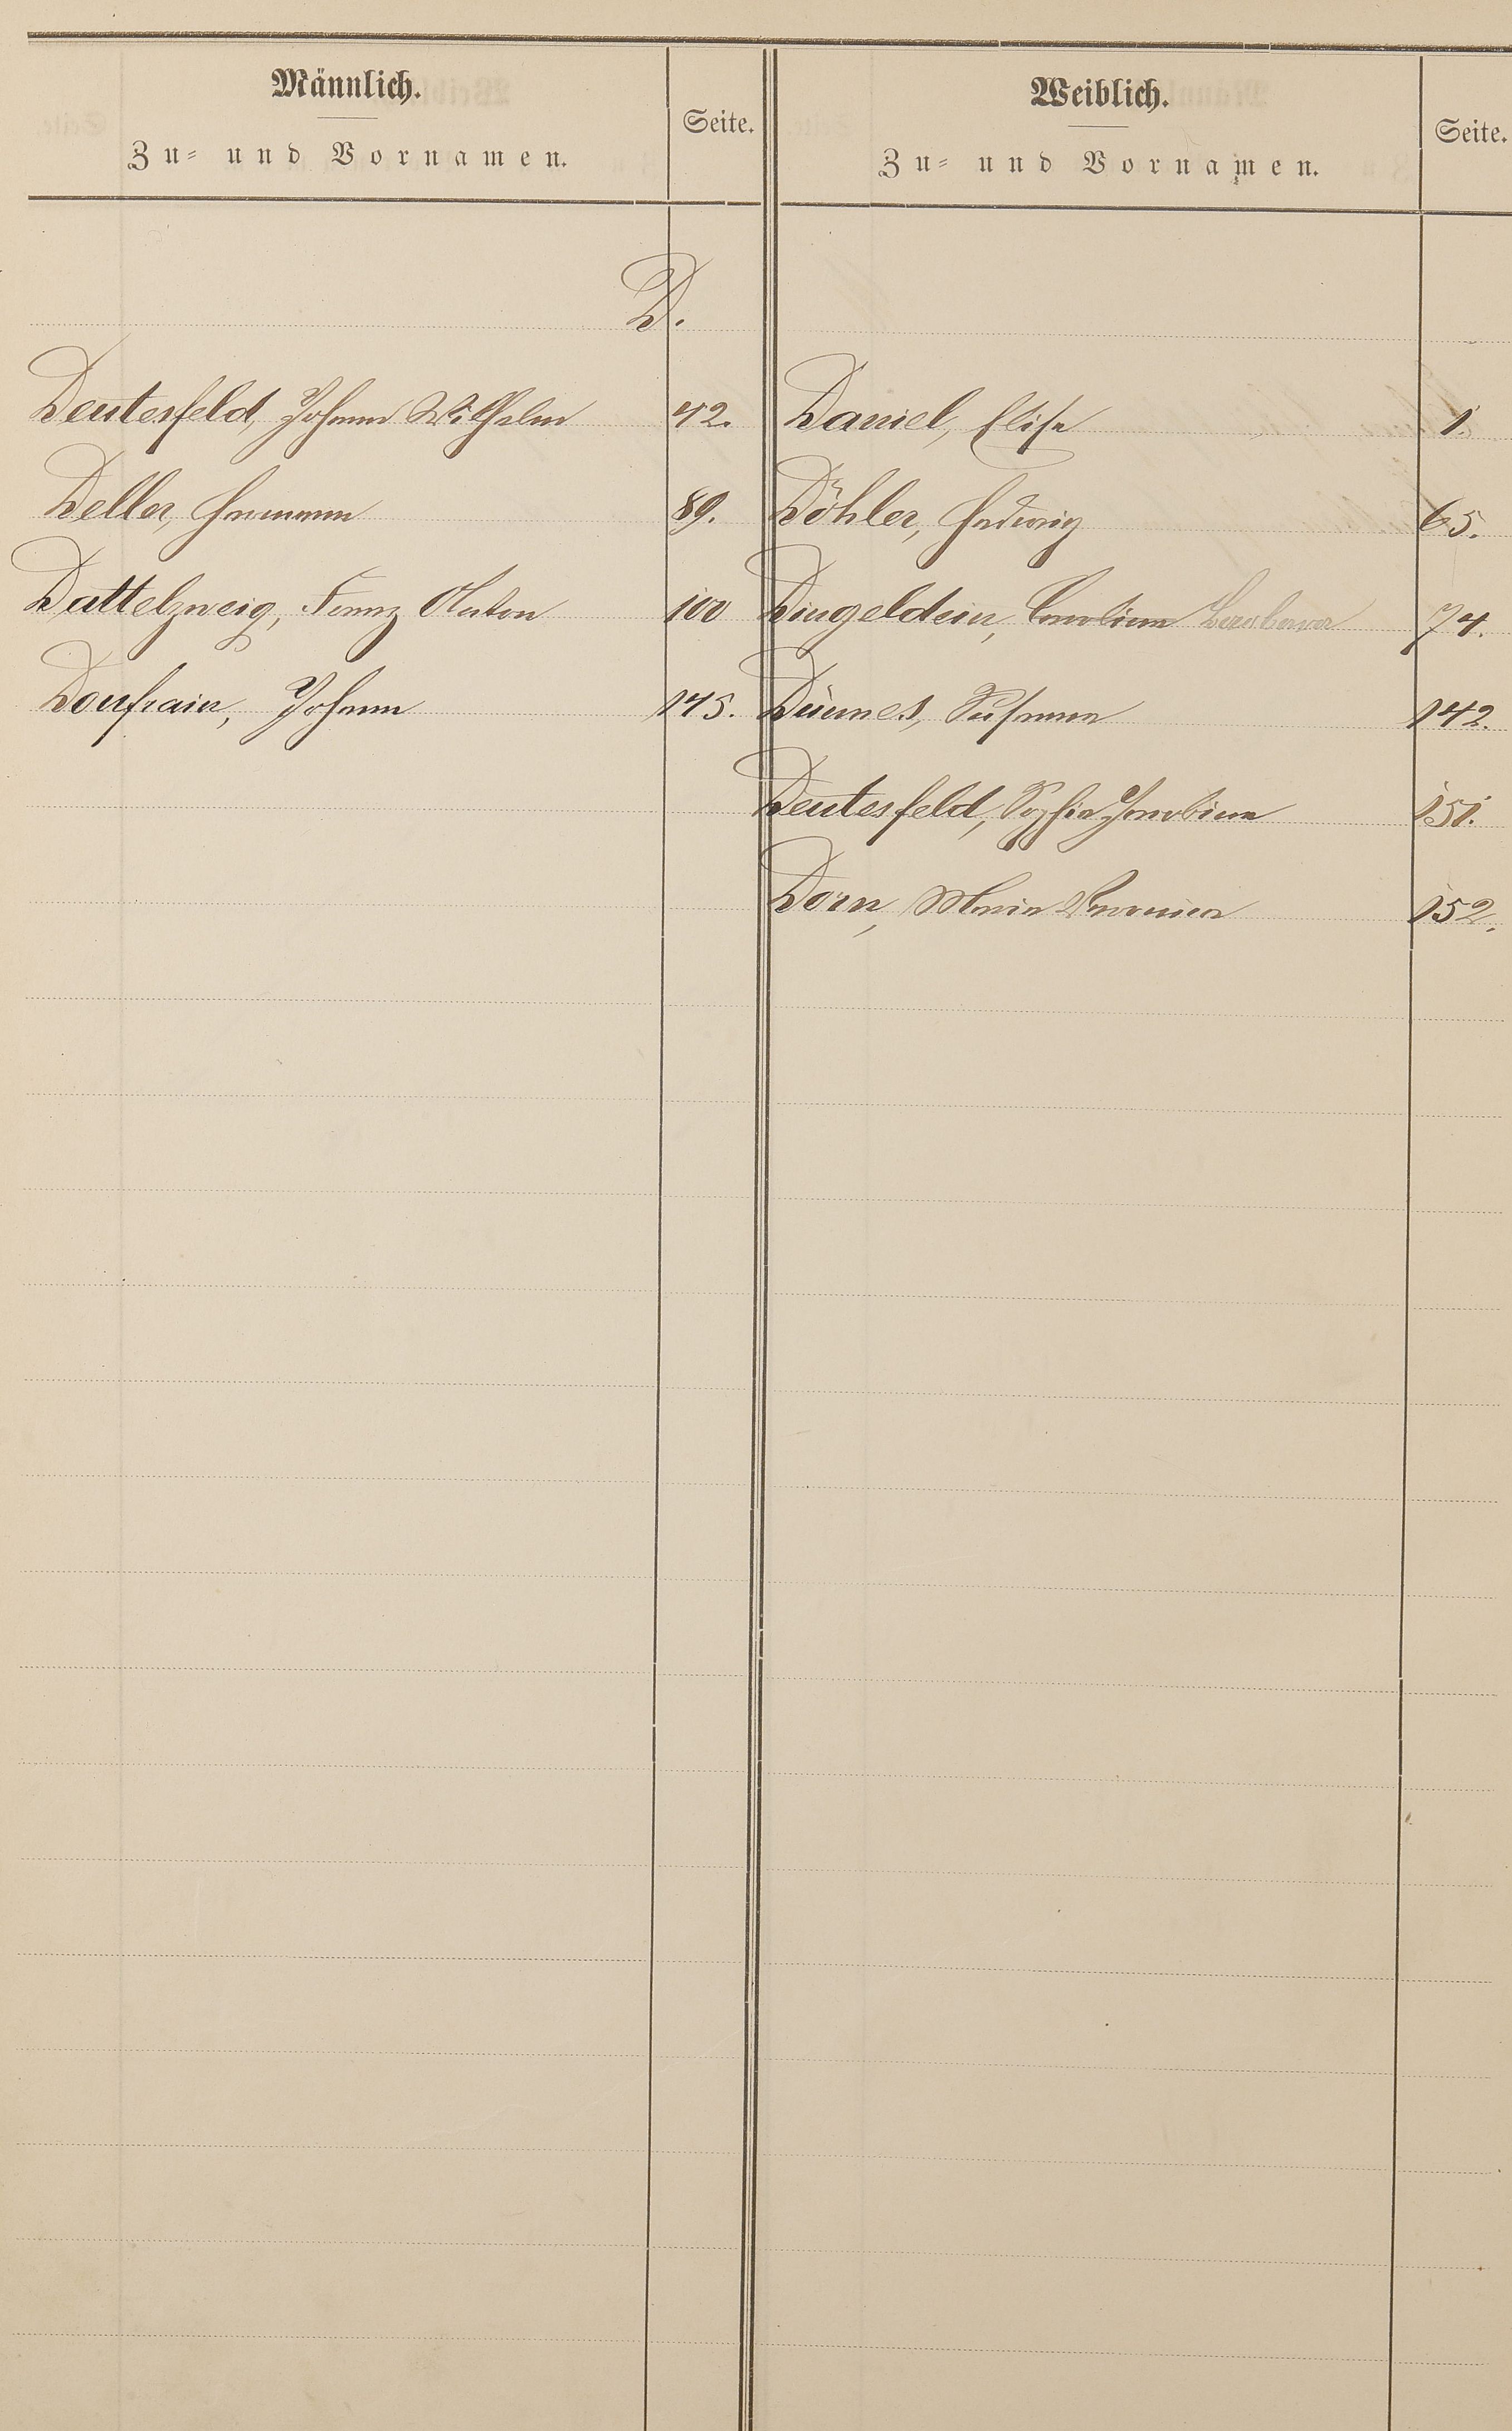 Männlich.
Zu- und Vornamen.
Seite.
Weiblich.
Zu- und Vornamen.
Seite.
D.
Deutesfeld, Johann Wilhelm 42.
Deller, Hermann 89.
Dattelzweig, Franz Anton 100
Donfrain, Johann 145.
Daniel, Elise 1.
Döhler, Hedwig 65.
Dingeldein, Carolina Barbara 74.
Dünnes, Susanna 142.
Deutesfeld, Sophia Jacobina 151.
Dorn, Maria Veronica 152.